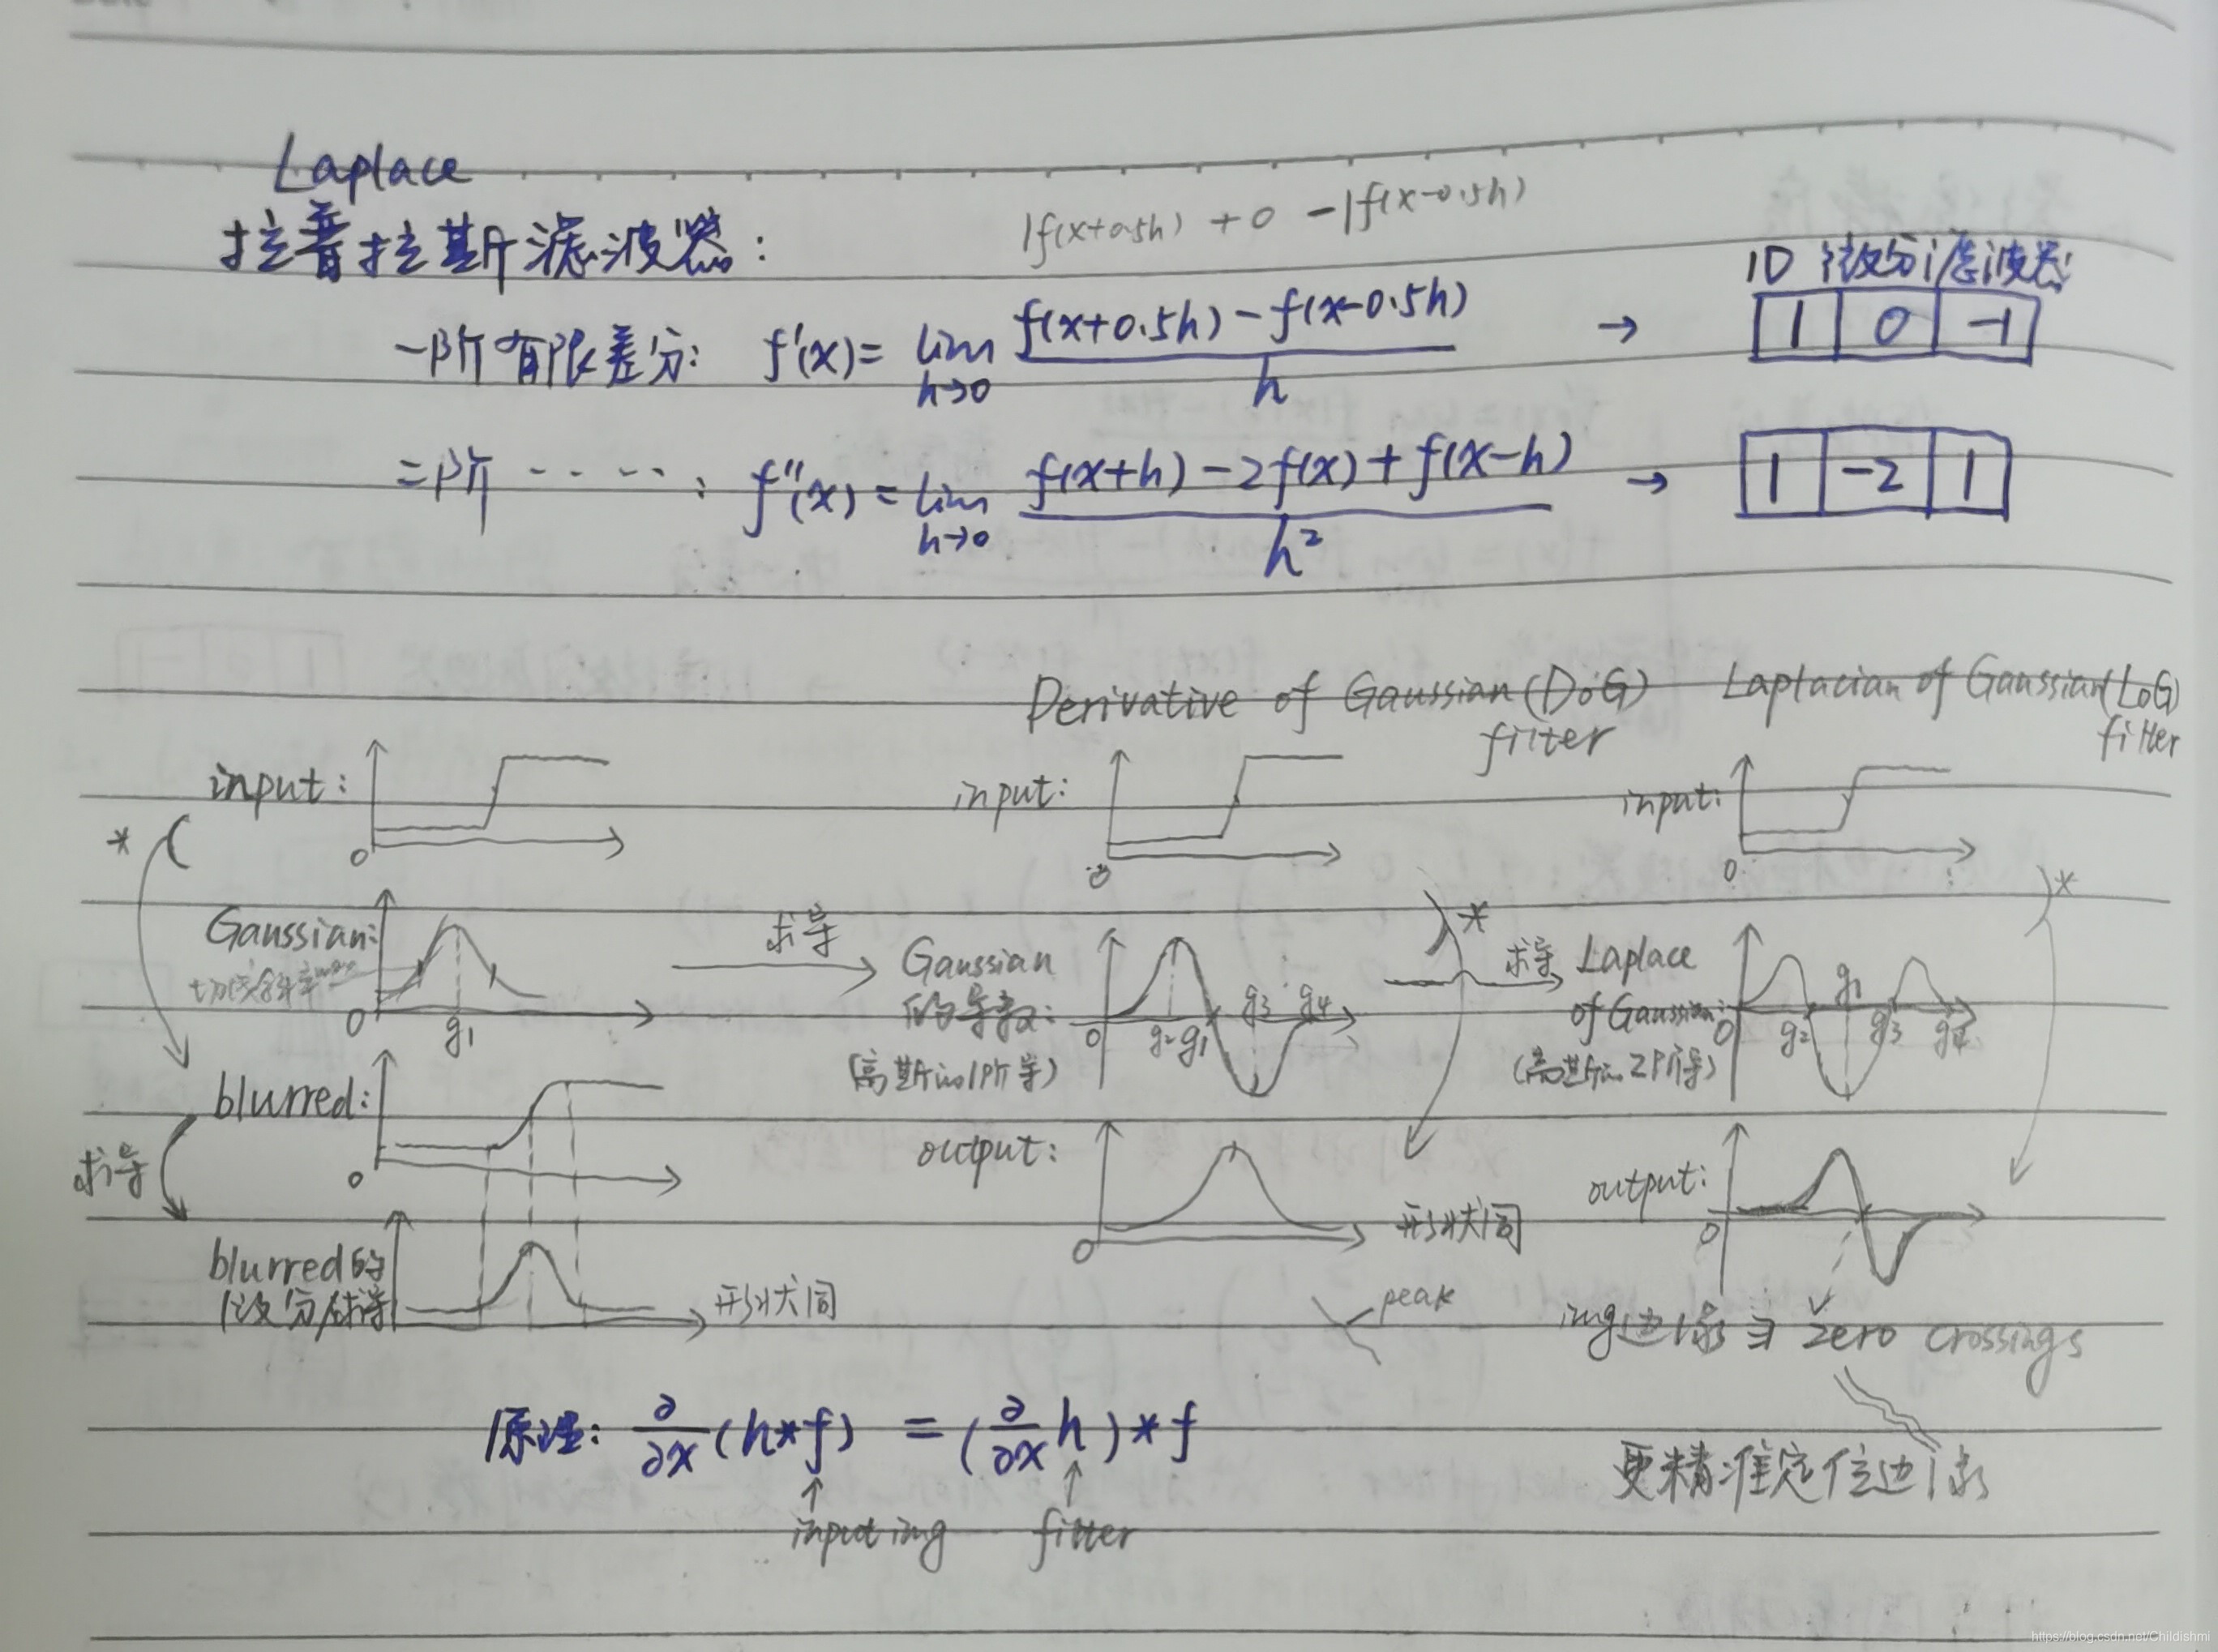 Laplace
拉普拉斯滤波器:
1f(x+0.5h) + 0 -1f(x-0.5h)
1D 微分滤波器
一阶有限差分: f'(x) = lim h→0 f(x+0.5h) - f(x-0.5h) / h → 1 0 -1
二阶 ‥ ‥ : f''(x) = lim h→0 f(x+h) - 2f(x) + f(x-h) / h² → 1 -2 1
Derivative of Gaussian (DoG) filter
Laplacian of Gaussian (LoG) filter
input: 0
input: 0
input: 0
*
*
*
Gaussian: 0 g1
切线斜率max
求导
Gaussian 的导数: 0 g2 g1 g3 g4
(高斯的1阶导)
求导
Laplace of Gaussian: 0 g2 g1 g3 g4
(高斯的2阶导)
blurred: 0
求导
output: 0
形状同
output: 0
blurred的微分/求导
形状同
peak
img边缘 zero crossings
更精准定位边缘
原理: ∂/∂x (h*f) = (∂/∂x h) * f
↑ ↑
input img filter
https://blog.csdn.net/Childishmi